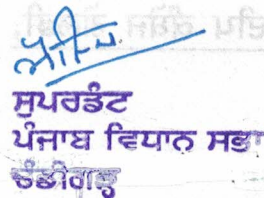 ਸੁਪਰਡੰਟ
ਪੰਜਾਬ ਵਿਧਾਨ ਸਭਾ
ਚੰਡੀਗੜ੍ਹ